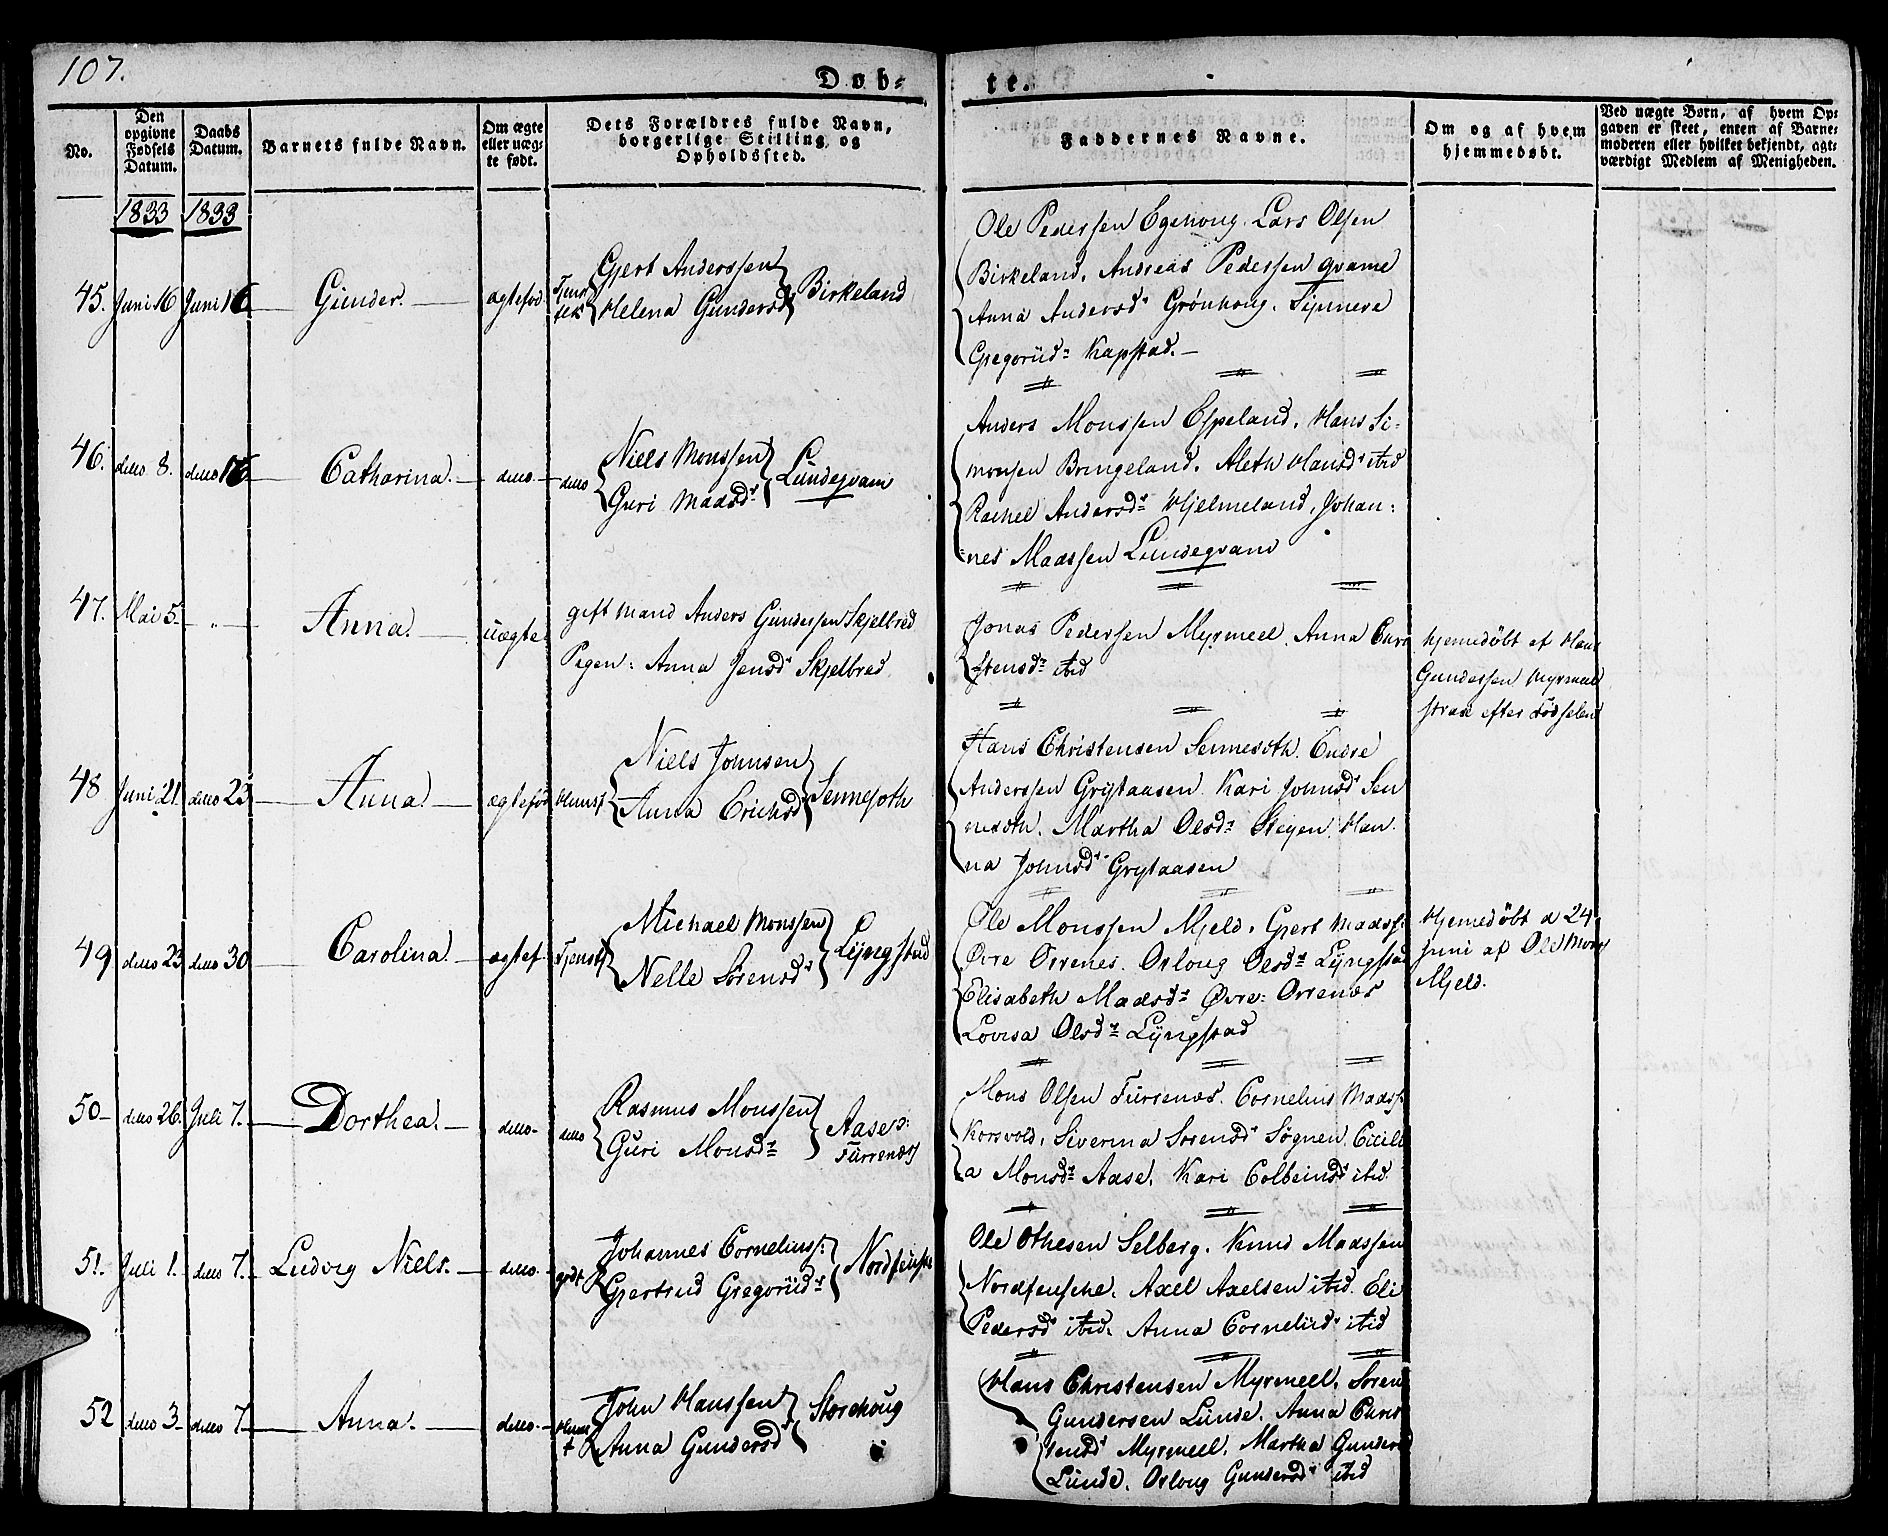 107.
Døb=
te.
No.
Den opgivne Fødsels Datum.
Daabs Datum.
Barnets fulde Navn.
Om ægte eller uægte født.
Dets Forældres fulde Navn, borgerlige Stilling og Opholdssted.
Faddernes Navne.
Om og af hvem hjemmedøbt.
Ved uægte Børn, af hvem Opgaven er skeet, enten af Barnemoderen eller hvilket bekjendt, agtværdigt Medlem af Menigheden.
1833 1833
45. Juni 16 Juni 16 Gunder. ægtefød
Gjert Anderssen
Helena Gundersdr
Birkeland
Ole Pedersen Egehoug. Lars Olsen
Birkeland. Andreas Pedersen Qvame
Anna Andersdr Grønhoug.
Gregoriid= Kapstad.
46. ditto 8. ditto 16 Catharina. ditto ditto
Niels Monssen
Guri Madsdr
Lundeqvam
Anders Monssen Espeland. Hans Si-
monsen Bringeland. Aleth Hansdr ibid
Rachel Andersdr Hjelmeland, Johan:
=nes Madssen Lundeqvam
47. Mai 5. " Anna. uægte
gift Mand Anders Gundersen Skjelbred
Pigen: Anna Jensdr Skjelbred
Jonas Pedersen Myrmeel. Anna Chri
stensdr ibid
Hjemedøbt af Hans
Gundersen Myrmeel
strax efter Fødselen
48 Juni 21. ditto 23 Anna. ægtefød Huusf
Niels Johnsen
Anna Erichsdr
Sennesoth
Hans Christensen Sennesoth. Endre
Anderssen Grytaasen. Kari Johnsdr Sen
nesoth. Martha Olsdr Steyen. Han
na Johnsdr Grytaasen
49 ditto 23 ditto 30 Carolina. ægtef.
Michael Monssen
Nelle Sørensdr
Lyngstad
Ole Monssen Mjeld. Gjert Madss:
Øvre Orrenes. Orloug Olsdr Lyngstad
Elisabeth Madsdr Øvre: Orrenæs
Lovisa Olsdr Lyngstad
Hjemedøbt d 24
Juni af Ole Mons
Mjeld.
50 ditto 26. Juli 7. Dorthea. ditto ditto
Rasmus Monssen
Guri Monsdr
Aase p:
Furrenæs
Mons Olsen Furrenæs. Cornelius Madss.
Korsvold. Severina Sorensdr Søgnen. Cicili
a Monsdr Aase. Kari Colbeinsdr ibid.
51. Juli 1. ditto 7. Ludvig Niels. ditto
Johannes Corneliuss:
Gjertrud Gregoriidr
Ole Othesen Selberg. Knud Madssen
Axel Axelsen ibid. Eli
Pedersdr ibid. Anna Corneliidr ibid
52 ditto 3 ditto 7. Anna. ditto
John Hanssen
Anna Gundersdr
Storehoug
Hans Christensen Myrmeel. Soren
Gundersen Lunde. Anna Chris
tensdr Myrmeel. Martha Gunders
Lunde. Orloug Gundersdr ibid